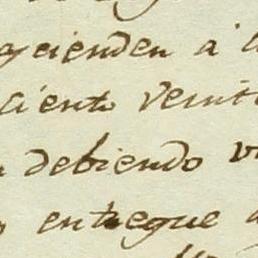 ascienden á
ciento veint
debiendo
entregue